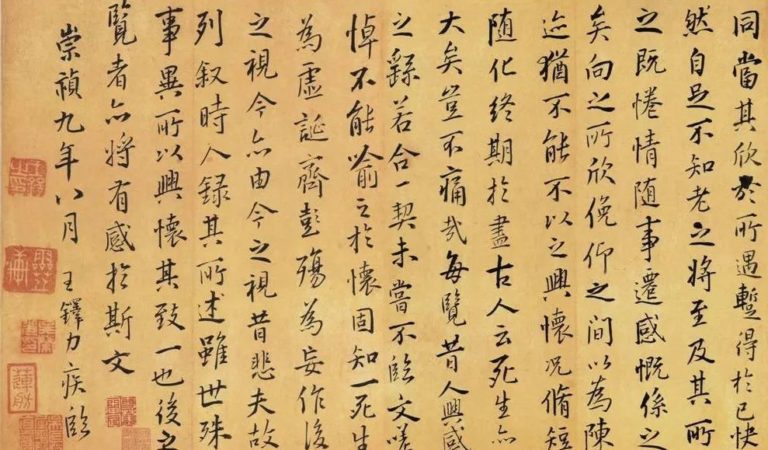 同當其欣於所遇暫得於己快
然自足不知老之將至及其所
之既惓情隨事遷感慨係之
矣向之所欣俛仰之間以為陳
迹猶不能不以之興懷况脩短
随化終期於盡古人云死生亦
大矣豈不痛哉每覽昔人興感
之繇若合一契未嘗不臨文嗟
悼不能喻之於懷固知一死生
為虛誕齊彭殤為妄作後
之視今亦由今之視昔悲夫故
列叙時人録其所述雖世殊
事異所以興懷其致一也後之
覽者亦將有感於斯文
崇禎九年八月王鐸力疾臨